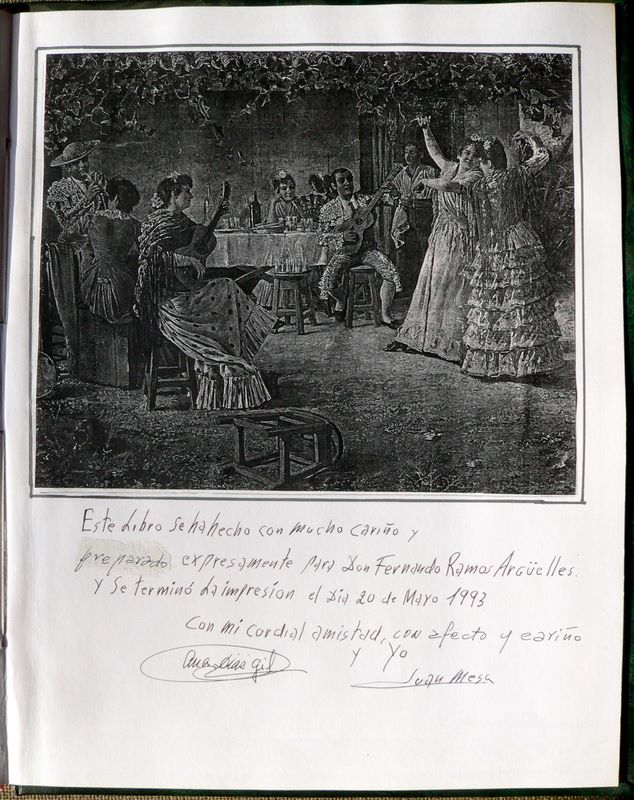 Este Libro se ha hecho con mucho cariño y
preparado expresamente para Don Fernando Ramos Argüelles.
y Se terminó La impresion el Dia 20 de Mayo 1993
Con mi cordial amistad, con afecto y cariño
y Yo
Juan Mesa